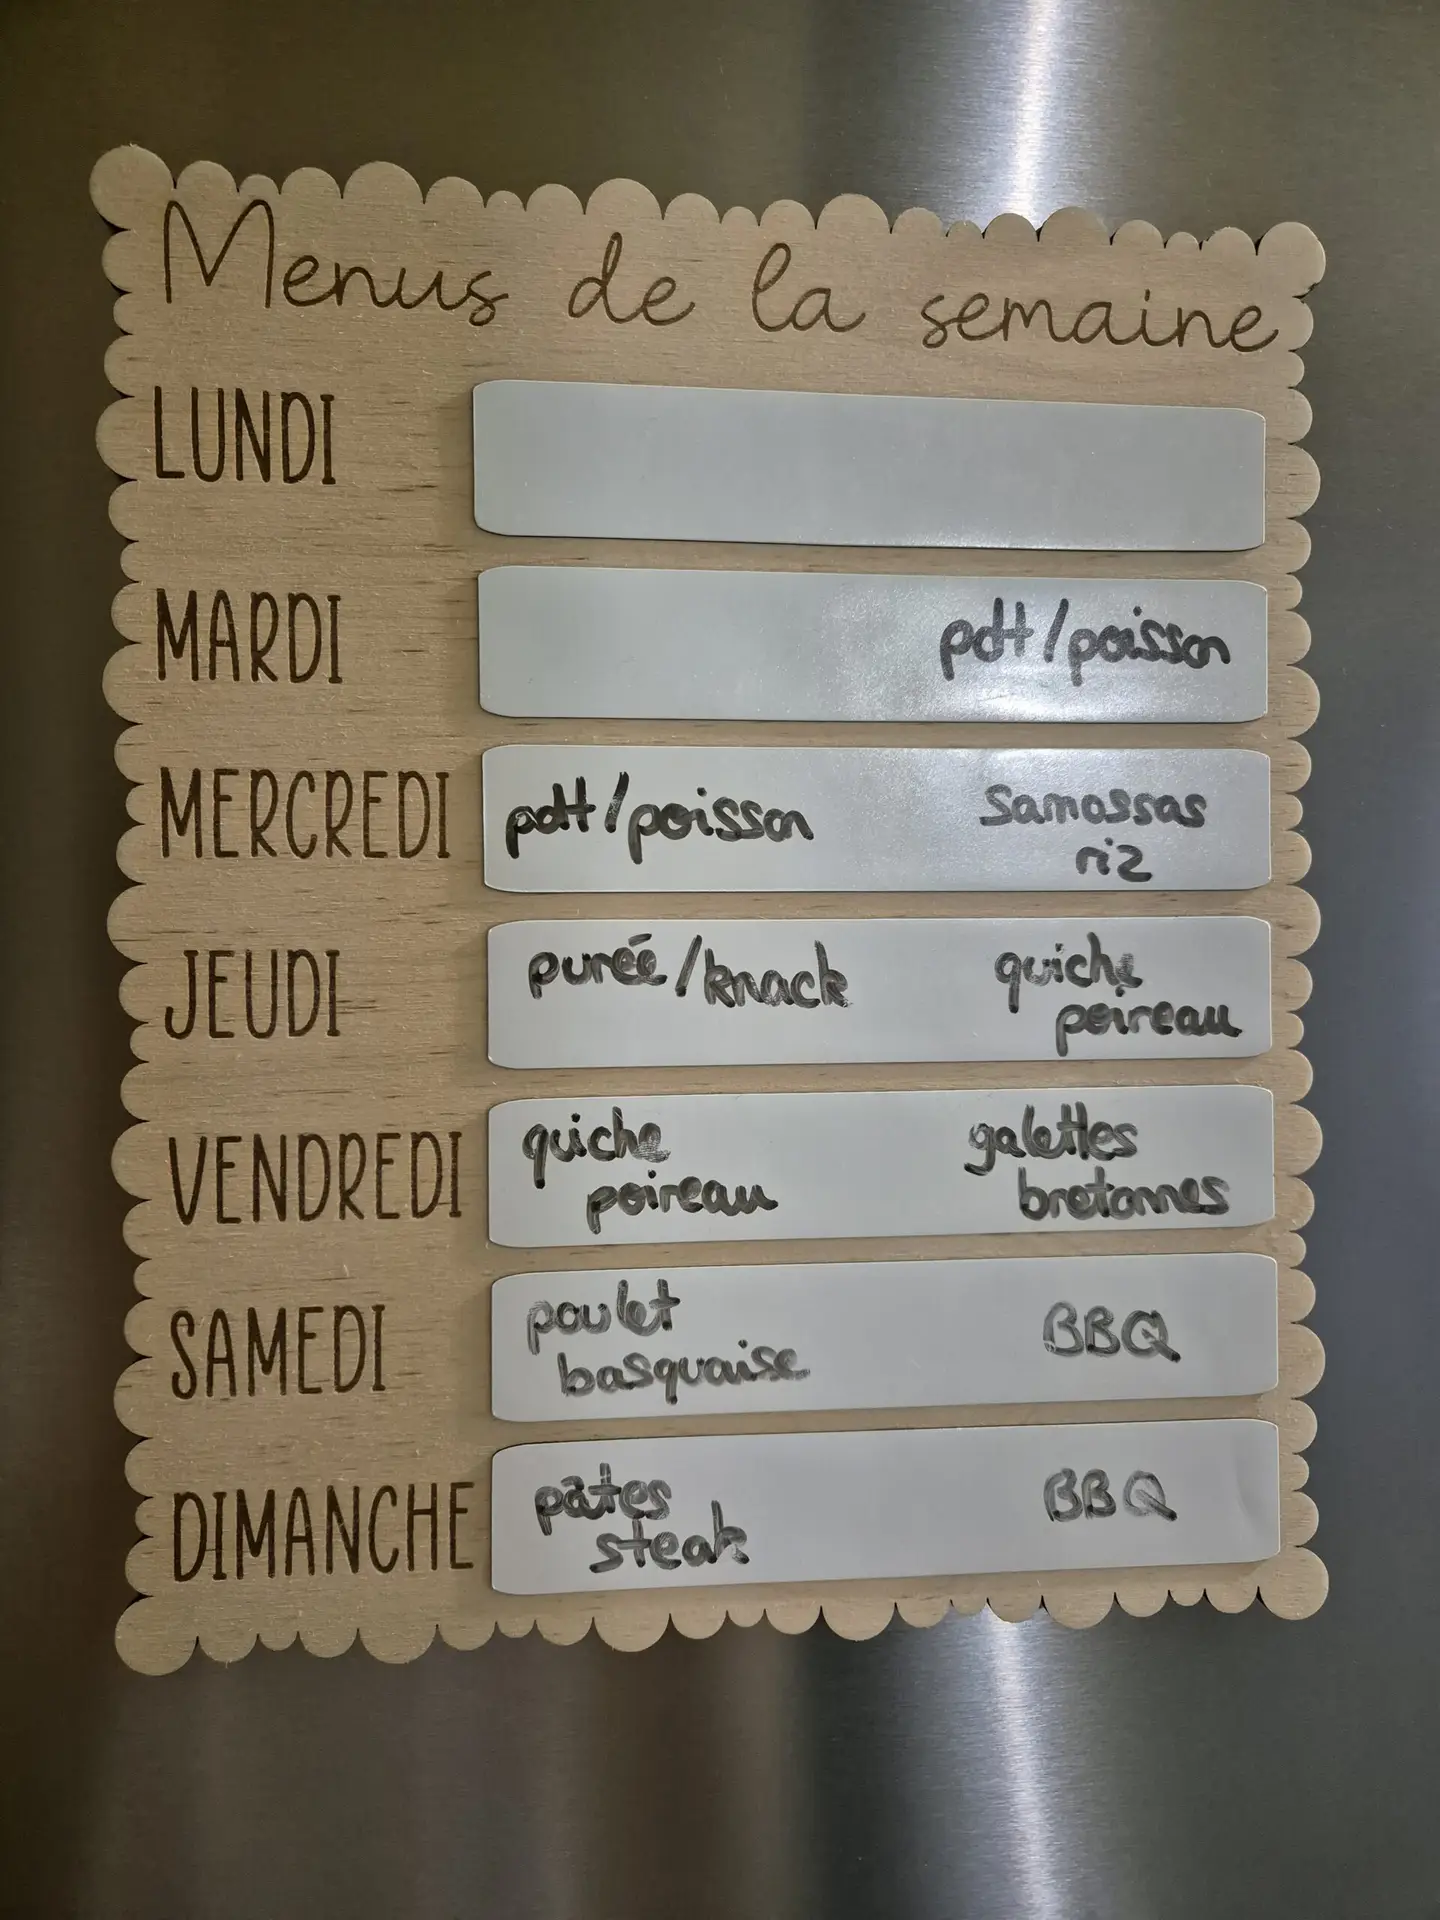 Menus de la semaine
LUNDI
MARDI pdt/poisson
MERCREDI pdt/poisson Samossas
riz
JEUDI purée/knack quiche
poireau
VENDREDI quiche galettes
poireau bretonnes
SAMEDI poulet BBQ
basquaise
DIMANCHE pâtes BBQ
steak